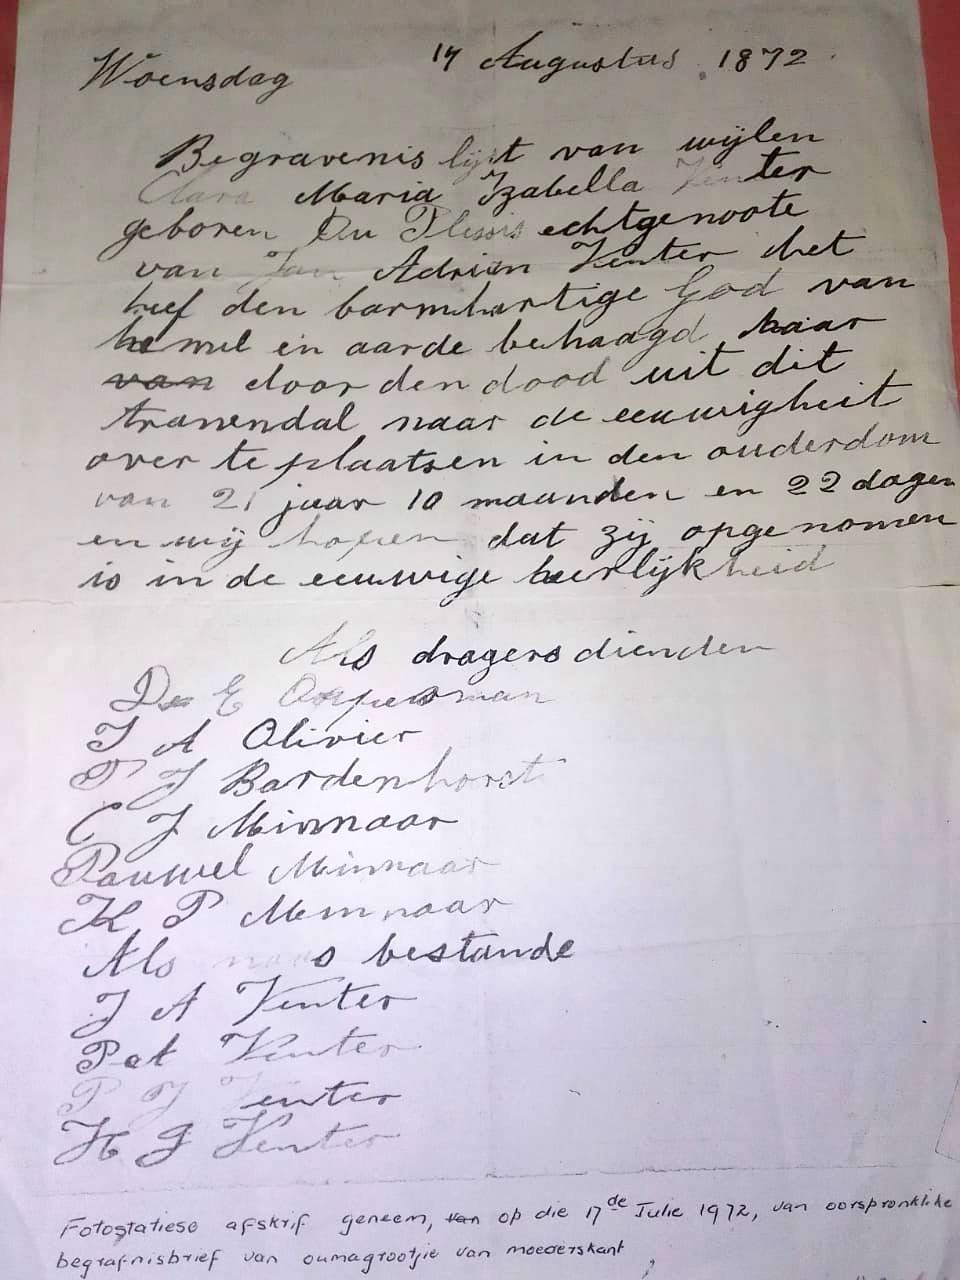 Woensdag 14 Augustus 1872
Begravenis lijst van wijlen
Clara Maria Izabella Venter
geboren Du Plessis echtgenoote
van Jan Adrian Venter het
heef den barmhartige God van
hemel en aarde behaagd haar
van door den dood uit dit
tranendal naar de eeuwigheit
over te plaatsen in den ouderdom
van 21 jaar 10 maanden en 22 dagen
en wij hopen dat zij opgenomen
is in de eeuwige heerlijkheid
Als dragers dienden
E
J A Olivier
P J Bardenhorst
C J Minnaar
Pauwel Minnaar
K P Memnaar
Als bestande
J A Venter
Pet Venter
P J Venter
H J Venter
Fotostatiese afskrif geneem, van op die 17de Julie 1972, van oorspronklike
begrafnisbrief van oumagrootjie van moederskant